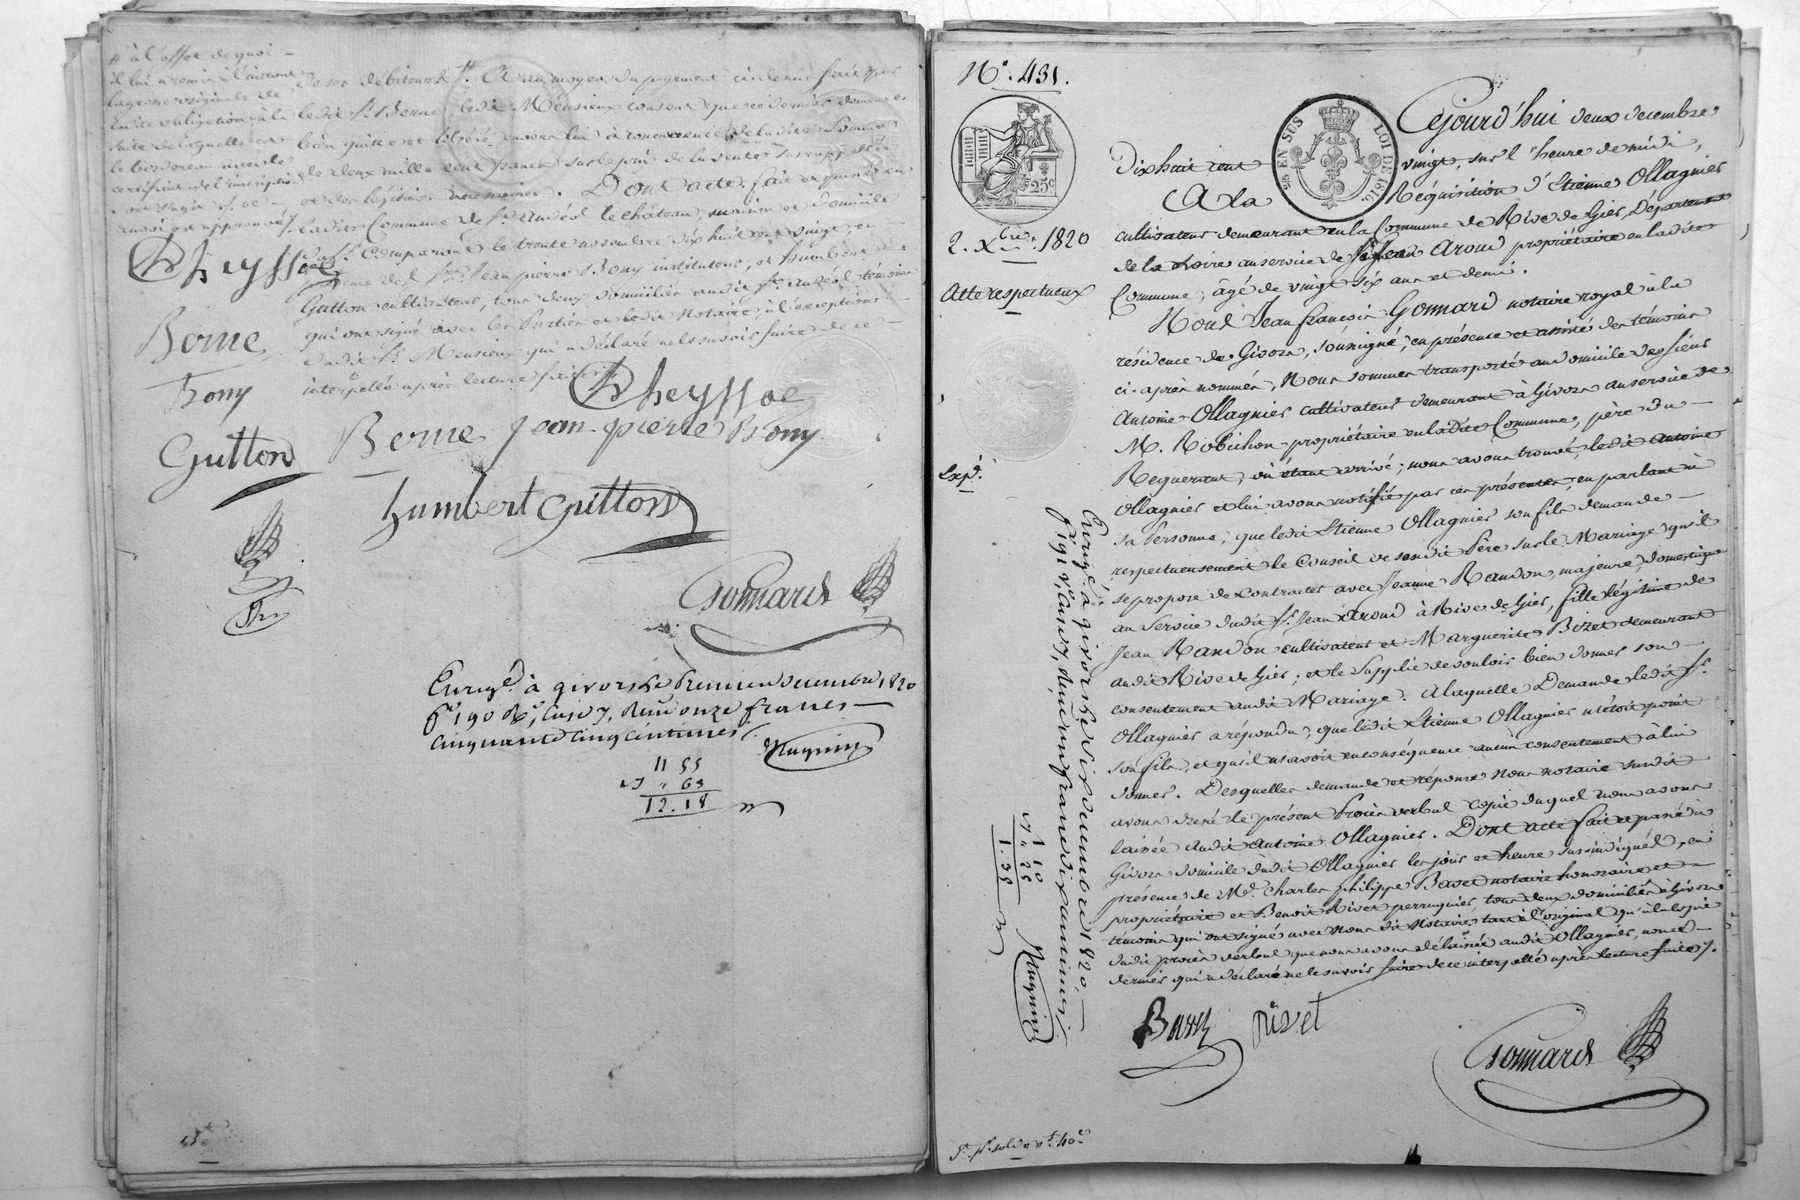 # à l'effet de quoi
il lui a remis à l'instant
la grosse originale de
ladite obligation à la
suite de laquelle est
le bordereau avec le
certificat de l'inscription
aussi approuvé
de son débiteur #. Et au moyen du payement ci-dessus fait par
ledit Sr. Berne, ledit Mensieux consent que ce dernier demeure
bien quitte et libéré envers lui à concurrence de ladite somme
de deux mille cent francs sur le prix de la vente sus rappellée
et des légitimes. Dont acte, fait et passé en
ladite Commune de St. Andéol le château, maison et domicile
dud. Sr. Comparant le trente novembre dix huit cent vingt, en
présence de Srs. Jean pierre Bony instituteur, et humbert
Gutton cultivateur, tous deux domiciliés audit St. Andéol témoins
qui ont signé avec les Parties et ledit Notaire, à l'exception
dudit Sr. Mensieux qui a déclaré ne le savoir faire de ce
interpellé après lecture faite
Cheyssac
Berne
Bony
Gutton
Cheyssac
Berne Jean-pierre Bony
humbert Gutton
Gonnard
Enregé. à givors le premier décembre 1820
fo. 190 Ro. Case 7, Reçu onze francs
cinquante cinq centimes
Magnin
11 55
" 63
12.18
No. 431.
25 EN SUS
LOI DE 1816
25c
2. Xbre. 1820
Acte respectueux
Expé.
Cejourd'hui deux décembre
dix huit cent vingt, sur l'heure de midi,
A la Réquisition d'Etienne Ollagnier
cultivateur demeurant en la Commune de Rive de Gier, Département
de la Loire au service de Sr. Jean Aroud propriétaire en ladite
Commune, âgé de vingt six ans et demi.
Nous Jean françois Gonnard notaire royal à la
résidence de Givors, soussigné, en présence et assisté des témoins
ci-après nommés, Nous sommes transporté au domicile de sieur
Antoine Ollagnier cultivateur demeurant à Givors au service de
M. Robichon propriétaire en ladite Commune, père du
Requerant, où étant arrivé; nous avons trouvé, ledit Antoine
Ollagnier et lui avons notifié par ces présentes, en parlant à
sa Personne, que ledit Etienne Ollagnier son fils demande
respectueusement le Conseil de sondit Père sur le Mariage qu'il
se propose de contracter avec Jeanne Randon, majeure, domestique
au Service dudit Sr. Jean Aroud à Rive de Gier, fille légitime de
Jean Randon cultivateur et Marguerite Bizet demeurant
audit Rive de Gier; et le Supplie de vouloir bien donner son
consentement audit Mariage. A laquelle Demande ledit Sr.
Ollagnier a répondu, que ledit Etienne Ollagnier n'étoit point
son fils, et qu'il n'avoit en conséquence aucun consentement à lui
donner. Desquelles demande et réponse Nous notaire susdit
avons dressé le présent Procès verbal copie duquel nous avons
laissée audit Antoine Ollagnier. Dont acte fait et passé à
Givors domicile dudit Ollagnier les jour et heure sus-indiqués, en
présence de Mr. Charles philippe Basset notaire honoraire et
propriétaire et Benoit Rivet perruquier, tous deux domiciliés à Givors
témoins qui ont signé avec Nous dit Notaire tant à l'original qu'à la copie
dudit procès verbal que nous avons délaissée audit Ollagnier, non ce
dernier qui a déclaré ne le savoir faire de ce interpellé après lecture faite.
Enregé. à givors le six décembre 1820,
fo. 191 Vo. Case 7, Reçu un franc dix centimes
1 10
" 25
1.35
Magnin
Rivet
Gonnard